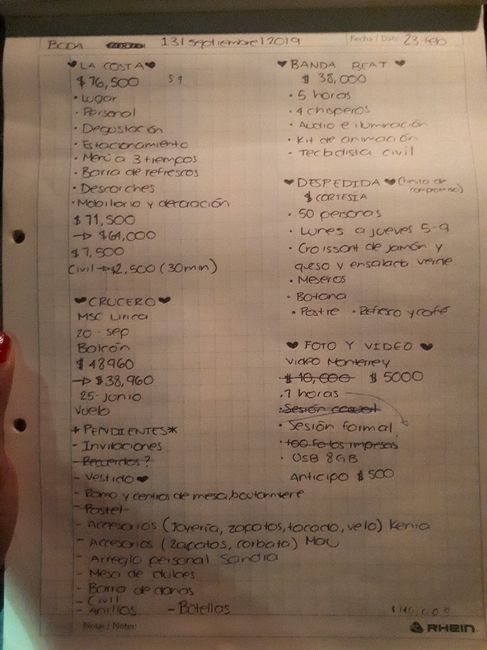 BODA 13/septiembre/2019 Fecha / Date: 23 feb
♥ LA COSTA ♥
$76,500
• Lugar
• Personal
• Degustación
• Estacionamiento
• Menú a 3 tiempos
• Barra de refrescos
• Descorches
• Mobiliario y decoración
$71,500
→ $64,000
$7,500
Civil → $2,500 (30min)
♥ CRUCERO ♥
MSC Lirica
20 - sep
Balcón
$48960
→ $38,960
25-junio
Vuelo
* PENDIENTES *
- Invitaciones
- Recuerdos?
- Vestido ♥
- Ramo y centros de mesa, boutonniere
- Pastel
- Accesorios (Joyería, zapatos, tocado, velo) Kenia
- Accesorios (zapatos, corbata) Mau
- Arreglo personal Sandra
- Mesa de dulces
- Barra de donas
- Civil
- Anillos - Botellas
♥ BANDA REAT ♥
$38,000
• 5 horas
• 4 chisperos
• Audio e iluminación
• Kit de animación
• Tecladista civil
♥ DESPEDIDA ♥ (fiesta de compromiso)
$ CORTESIA
• 50 personas
• Lunes a jueves 5-9
• Croissant de jamón y
queso y ensalada verde
• Meseros
• Botana
• Postre • Refresco y café
♥ FOTO Y VIDEO ♥
Video Monterrey
$10,000 $5000
• 7 horas
• Sesión casual
• Sesión formal
• 100 fotos impresas
• USB 8GB
Anticipo $500
Notas / Notes:
RHEIN